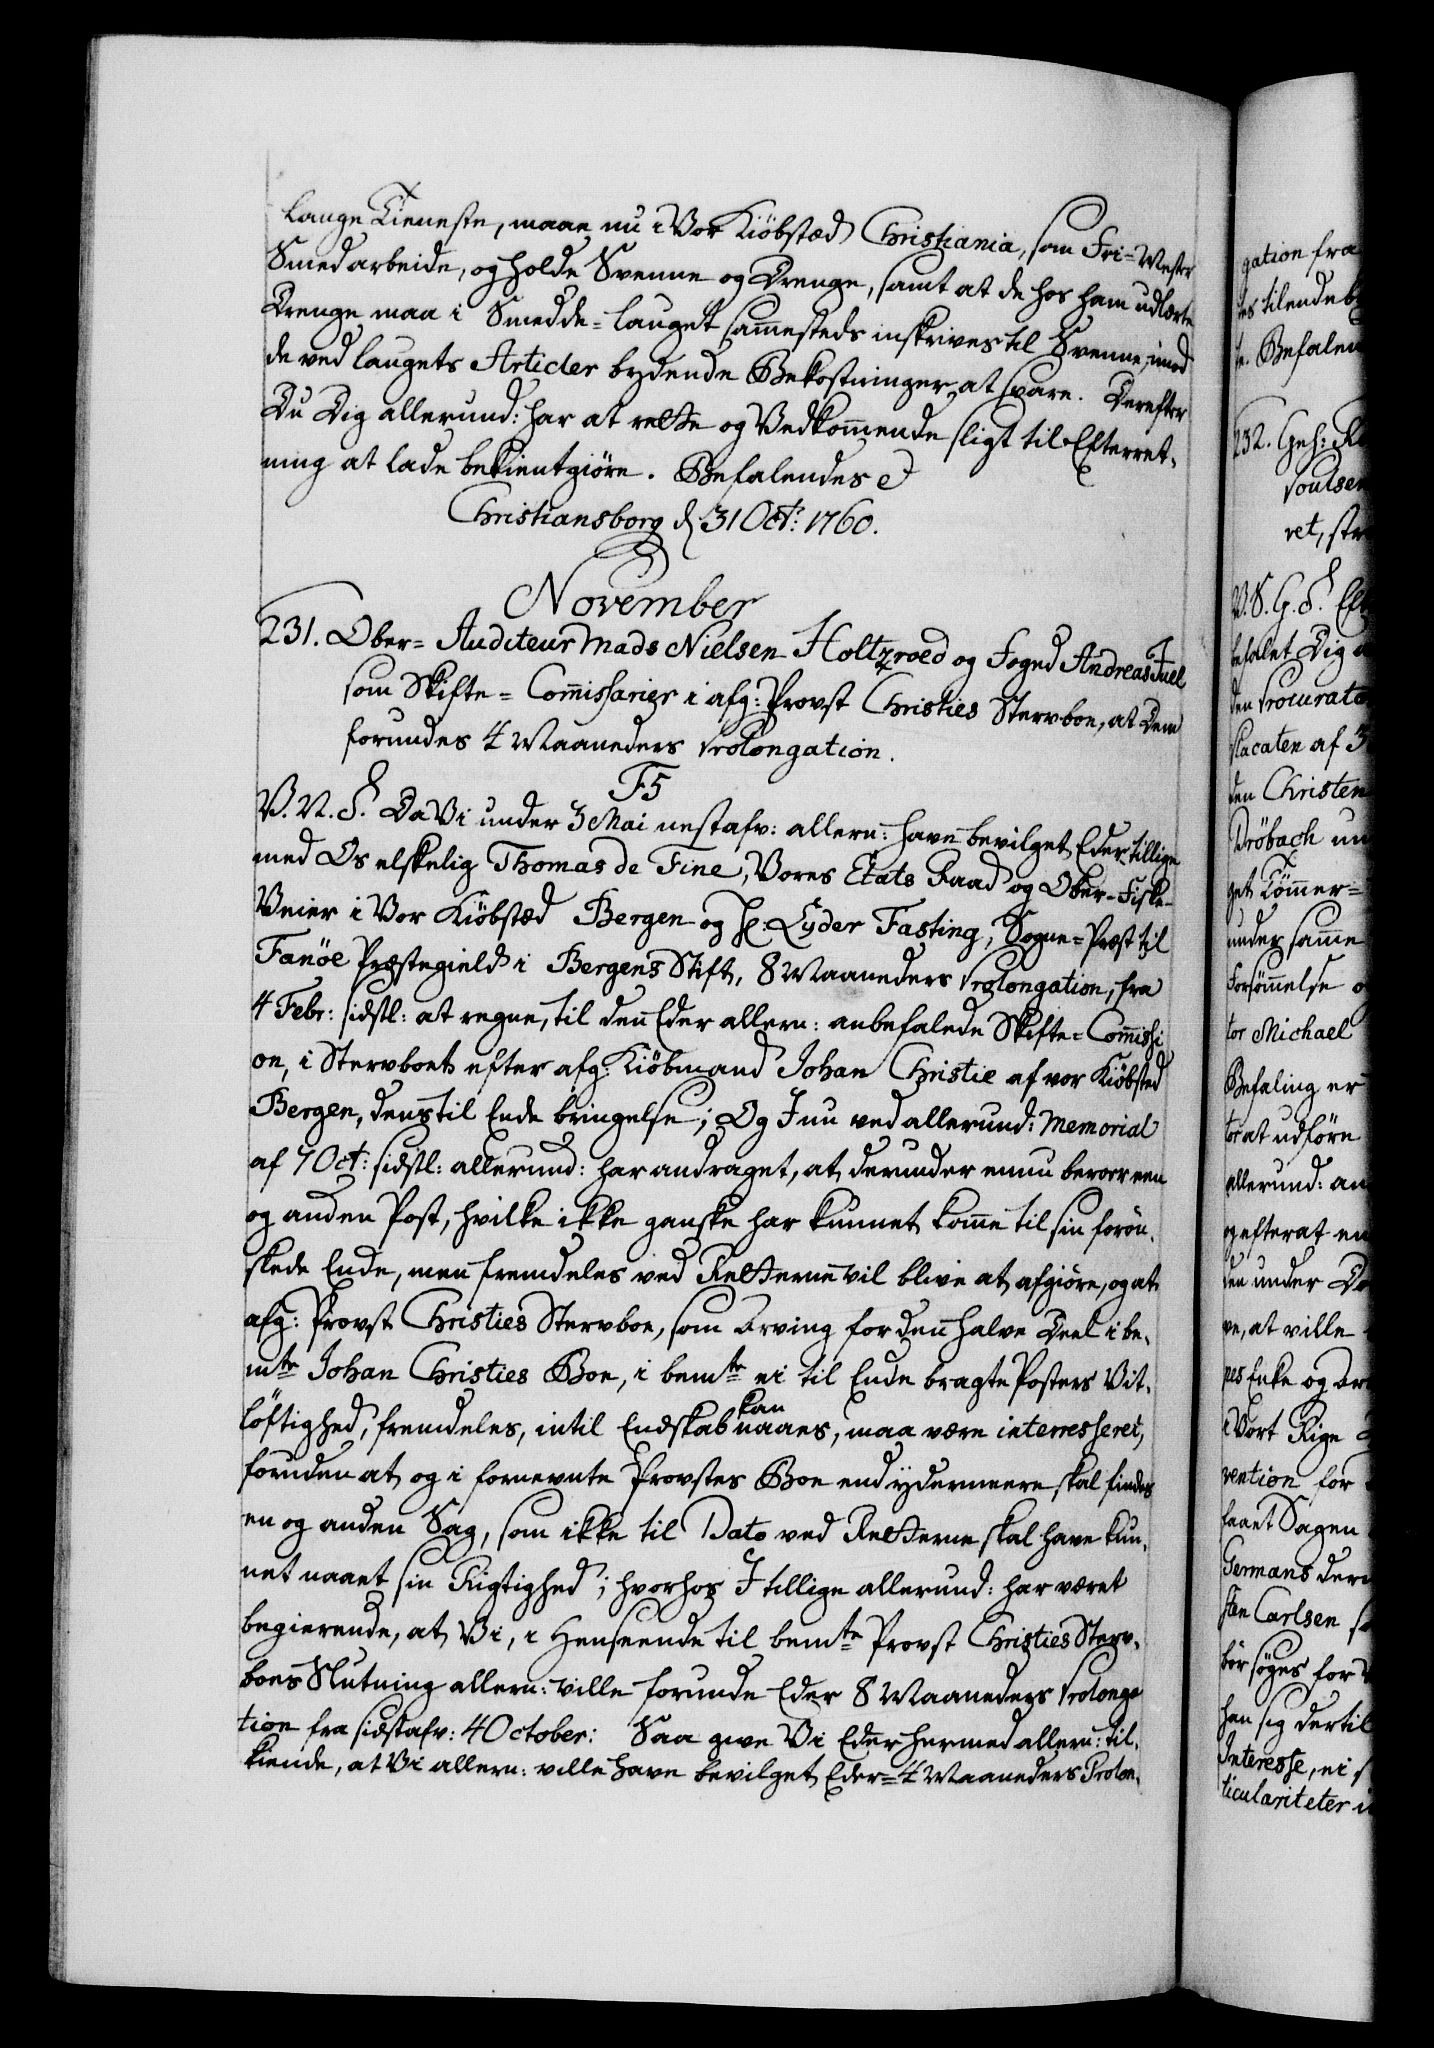 lange Tieneste, maae nu i Vor Kiöbstæd Christiania, som Fri-Mester
Smedarbeide, og holde Svenne og Drenge, samt at de hos ham udlærte
Drenge maa i Smedde-lauget sam̅esteds inskrives til Svenne, imod
de ved laugets Articler bydende Bekostninger at svare. Derefter
Du Dig allerund: har at rette og Vedkom̅ende sligt til Efterret-
ning at lade bekientgiöre. Befalendes
Christiansborg d. 31 Oct: 1760.
November
231. Ober-Auditeur Mads Nielsen Holtzroed og Foged Andreas Juel
som Skifte-Com̅issarier i afg: Provst Christies Stervboe, at Dem
forundes 4 Maaneders Prolongation.
F5
V. V. G. Da Vi under 3 Mai nestafv: allern: have bevilget Eder tillige
med Os elskelig Thomas de Fine, Vores Etats Raad og Ober-Fiske-
Veier i Vor Kiöbstæd Bergen og Hr. Lyder Fasting, Sogne-Præst til
Fanöe Præstegield i Bergens Stift, 8 Maaneders Prolongation, fra
4 Febr: sidstl: at regne, til den Eder allern: anbefalede Skifte-Com̅issi
on, i Stervboet efter afg: Kiöbmand Johan Christie af vor Kiöbsted
Bergen, dens til Ende bringelse; Og I nu ved allerund: Memorial
af 7 Oct: sidstl: allerund: har andraget, at derunder ennu beroer een
og anden Post, hvilke ikke ganske har kunnet kom̅e til sin forön-
skede Ende, men fremdeles ved Retterne vil blive at afgiöre, og at
afg: Provst Christies Stervboe, som Arving for den halve Deel i be-
mte Johan Christies Boe, i bemte ei til Ende bragte Posters Vit-
löftighed, fremdeles, intil Endskab kan naaes, maa være interresseret,
foruden at og i fornevnte Provstes Boe end ydermeere skal findes
en og anden Sag, som ikke til Dato ved Retterne skal have kun-
net naaet sin Rigtighed; hvorhos I tillige allerund: har været
begierende, at Vi, i Henseende til bemte Provst Christies Sterv-
boes Slutning allern: ville forunde Eder 8 Maaneders Prolonga
tion fra sidstafv: 4 October: Saa give Vi Eder hermed allern: til-
kiende, at Vi allern: ville have bevilget Eder 4 Maaneders Prolon-
gation fra
tes tilendeb
Befalen
232. Geh: R
Poulsen
ret, str
V. S. G. G. Eft
befalet Dig
den Procurato
Placaten af 3
den Christen
Dröbach un
get Töm̅er-
under sam̅e
Forsöm̅else o
tor Michael
Befaling er
tor at udföre
allerund: an
og efterat en
den under D
ve, at ville
pes Enke og Ar
i Vort Rige
vention for
faaet Sagen
Germans der
sten Carlsen s
bör söges for
han sig dertil
Interesse, ei s
ticulariteter i